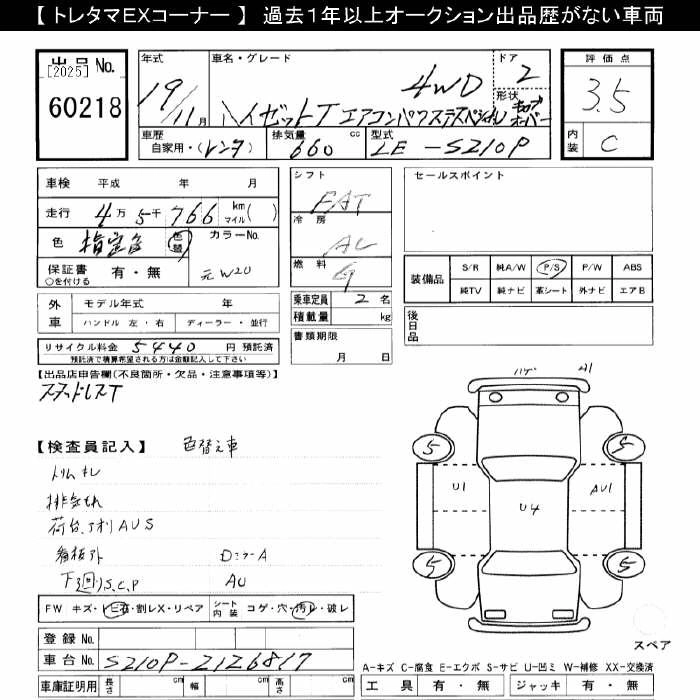 【 トレタマEXコーナー 】 過去1年以上オークション出品歴がない車両
出品 No.
[2025]
60218
年式 19/11 月
車名・グレード 4WD
ハイゼットT エアコンパワステスペシャル
ドア 2
形状 キャブオーバー
評価点 3.5
内装 C
車歴 自家用・(レンタ)
排気量 660 cc
型式 LE-S210P
車検 平成 年 月
走行 4万5千766 km マイル( )
色 指定色 色替 カラーNo.
元W20
保証書 有・無
○を付ける
外車 モデル年式 年
ハンドル 左・右 ディーラー・並行
リサイクル料金 5440 円 預託済
預託済で積算希望される方は金額記入して下さい
シフト FAT
冷房 AC
燃料 G
乗車定員 2 名
積載量 kg
書類期限
月 日
セールスポイント
装備品 S/R 純A/W P/S P/W ABS
純TV 純ナビ 革シート 外ナビ エアB
後日品
【出品店申告欄(不良箇所・欠品・注意事項等)】
スタッドレスT
【検査員記入】 色替え車
トリムキレ
排気もれ
荷台、アオリAUS
看板跡 DミラーA
下廻りS.C.P AU
FW キズ・トビ石・割レX・リペア シート内装 コゲ・穴・汚レ・破レ
登録 No.
車台 No. S210P-2126817
車庫証明用 長さ cm 幅 cm 高さ cm
ハゲ A1
5 5
U1 U4 AU1
5 5
スペア
A-キズ C-腐食 E-エクボ S-サビ U-凹ミ W-補修 XX-交換済
工具 有・無 ジャッキ 有・無